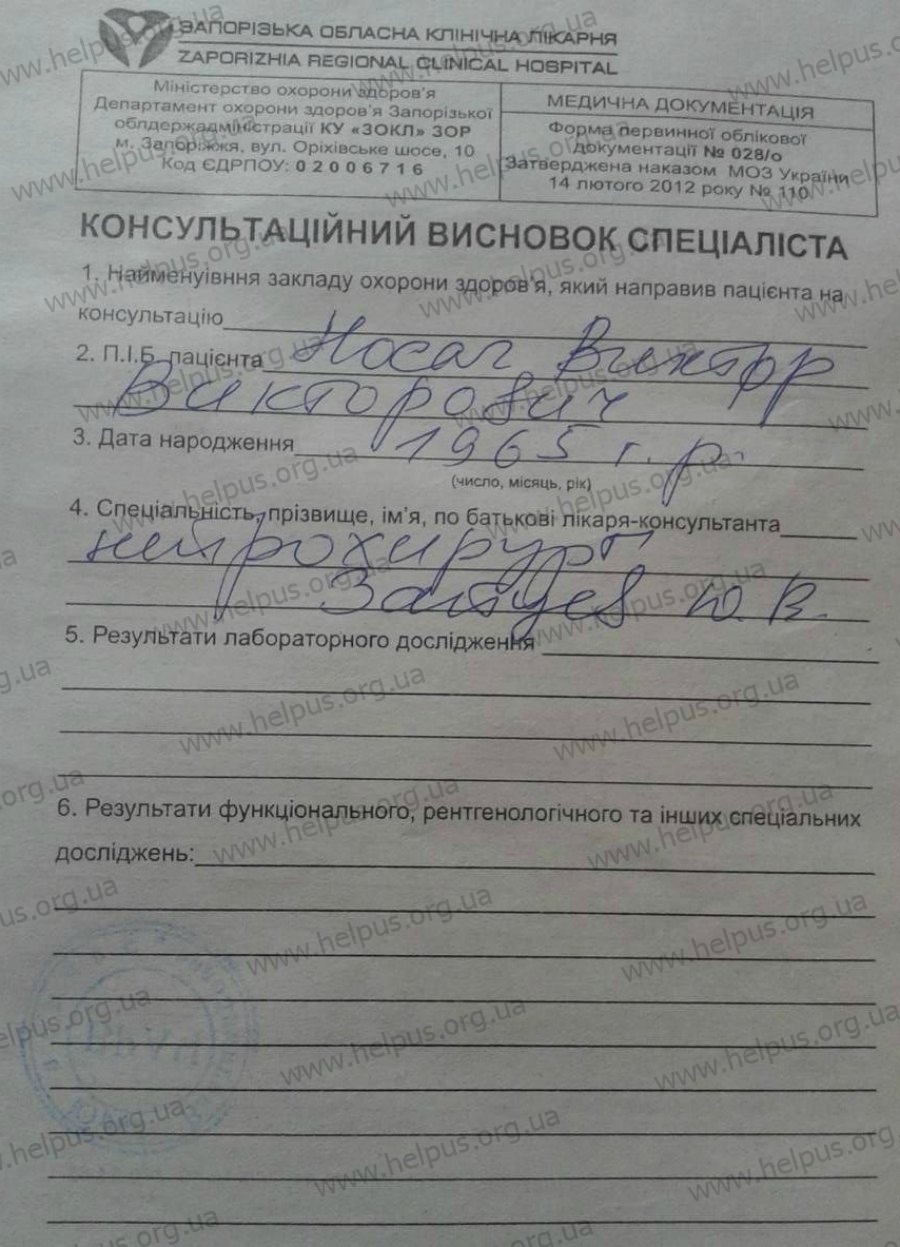 ЗАПОРІЗЬКА ОБЛАСНА КЛІНІЧНА ЛІКАРНЯ
ZAPORIZHIA REGIONAL CLINICAL HOSPITAL
Міністерство охорони здоров'я
Департамент охорони здоров'я Запорізької
облдержадміністрації КУ «ЗОКЛ» ЗОР
м. Запоріжжя, вул. Оріхівське шосе, 10
Код ЄДРПОУ: 0 2 0 0 6 7 1 6
МЕДИЧНА ДОКУМЕНТАЦІЯ
Форма первинної облікової
документації № 028/о
Затверджена наказом МОЗ України
14 лютого 2012 року № 110
КОНСУЛЬТАЦІЙНИЙ ВИСНОВОК СПЕЦІАЛІСТА
1. Найменуівння закладу охорони здоров'я, який направив пацієнта на
консультацію
2. П.І.Б. пацієнта Носач Виктор
Викторович
3. Дата народження 1965 г. р.
(число, місяць, рік)
4. Спеціальність, прізвище, ім'я, по батькові лікаря-консультанта
нейрохирург
Ю. В.
5. Результати лабораторного дослідження
6. Результати функціонального, рентгенологічного та інших спеціальних
досліджень:
www.helpus.org.ua